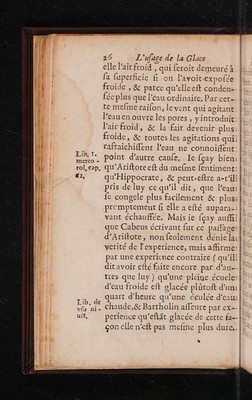 26 L'usage de la Glace
elle l'air froid, qui seroit demeuré à
sa superficie si on l'avoit exposée
froide, & parce qu'elle est conden-
sée plus que l'eau ordinaire. Par cet-
te mesme raison, le vent qui agitant
l'eau en ouvre les pores, y introduit
l'air froid, & la fait devenir plus
froide, & toutes les agitations qui
rafraichissent l'eau ne connoissent
point d'autre cause. Je sçay bien
qu'Aristote est du mesme sentiment
qu'Hippocrate, & peut-estre a-t'il
pris de luy ce qu'il dit, que l'eau
se congele plus facilement & plus
promptement si elle a esté aupara-
vant échauffée. Mais je sçay aussi
que Cabeus écrivant sur ce passage
d'Aristote, non seulement dénie la
verité de l'experience, mais affirme
par une experience contraire (qu'il
dit avoir esté faite encore par d'au-
tres que luy) qu'une pleine écuele
d'eau froide est glacée plûtost d'un
quart d'heure qu'une éculée d'eau
chaude, & Bartholin asseure par ex-
perience qu'estãt glacée de cette fa-
çon elle n'est pas mesme plus dure.
Lib. 1.
meteo-
rol. cap.
12.
Lib. de
usu ni-
vis.